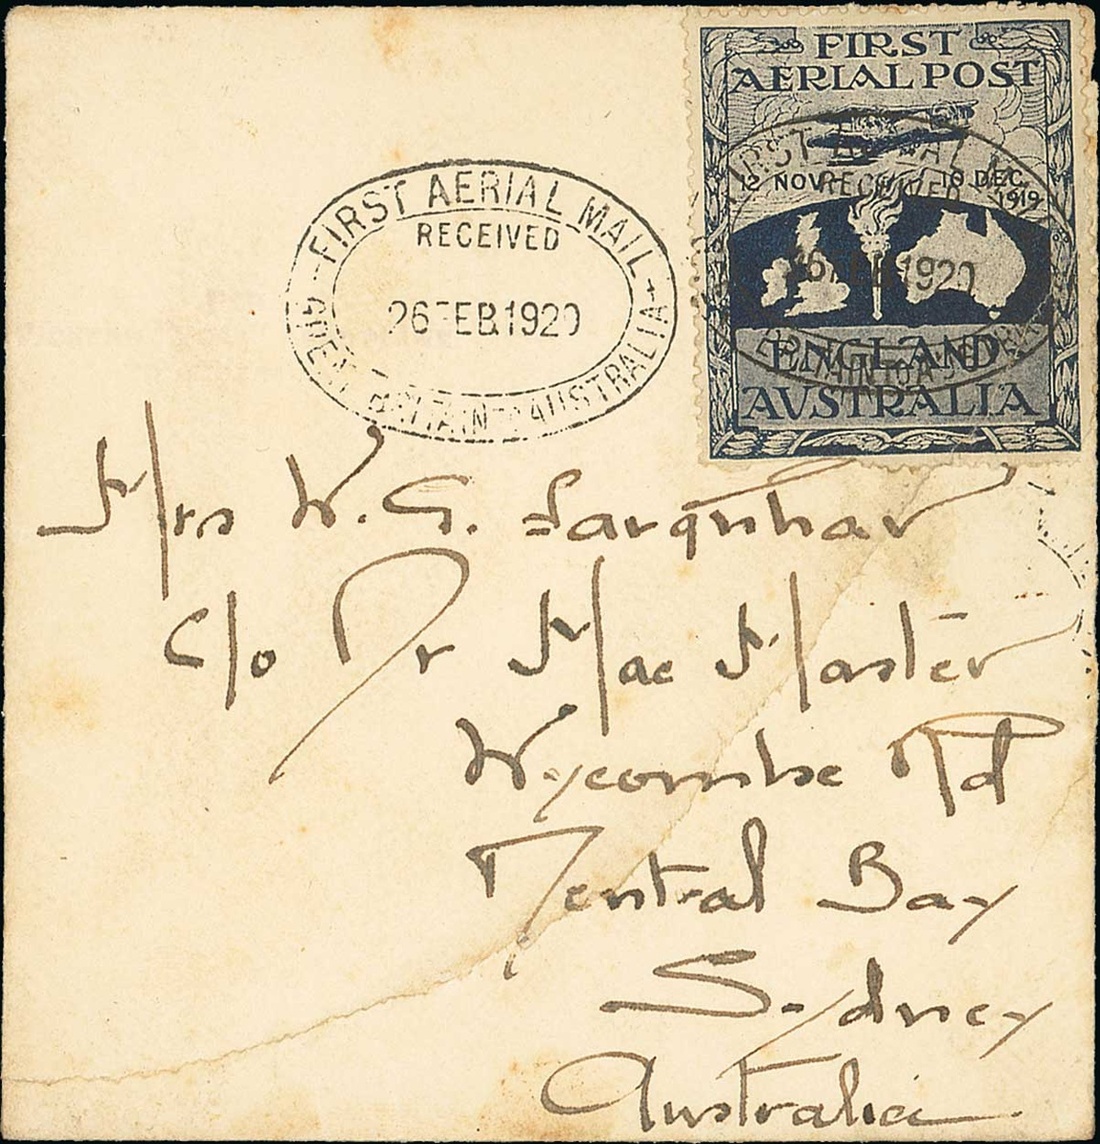 FIRST
AERIAL POST
12 NOV. 10 DEC.
1919
ENGLAND
AUSTRALIA
FIRST AERIAL MAIL
RECEIVED
26 FEB 1920
GREAT BRITAIN TO AUSTRALIA
RECEIVED
26 1920
BRITAIN TO AUSTRALIA
Mrs W. G. Farquhar
C/o Dr MacMaster
Wycombe Rd
Neutral Bay
Sydney
Australia